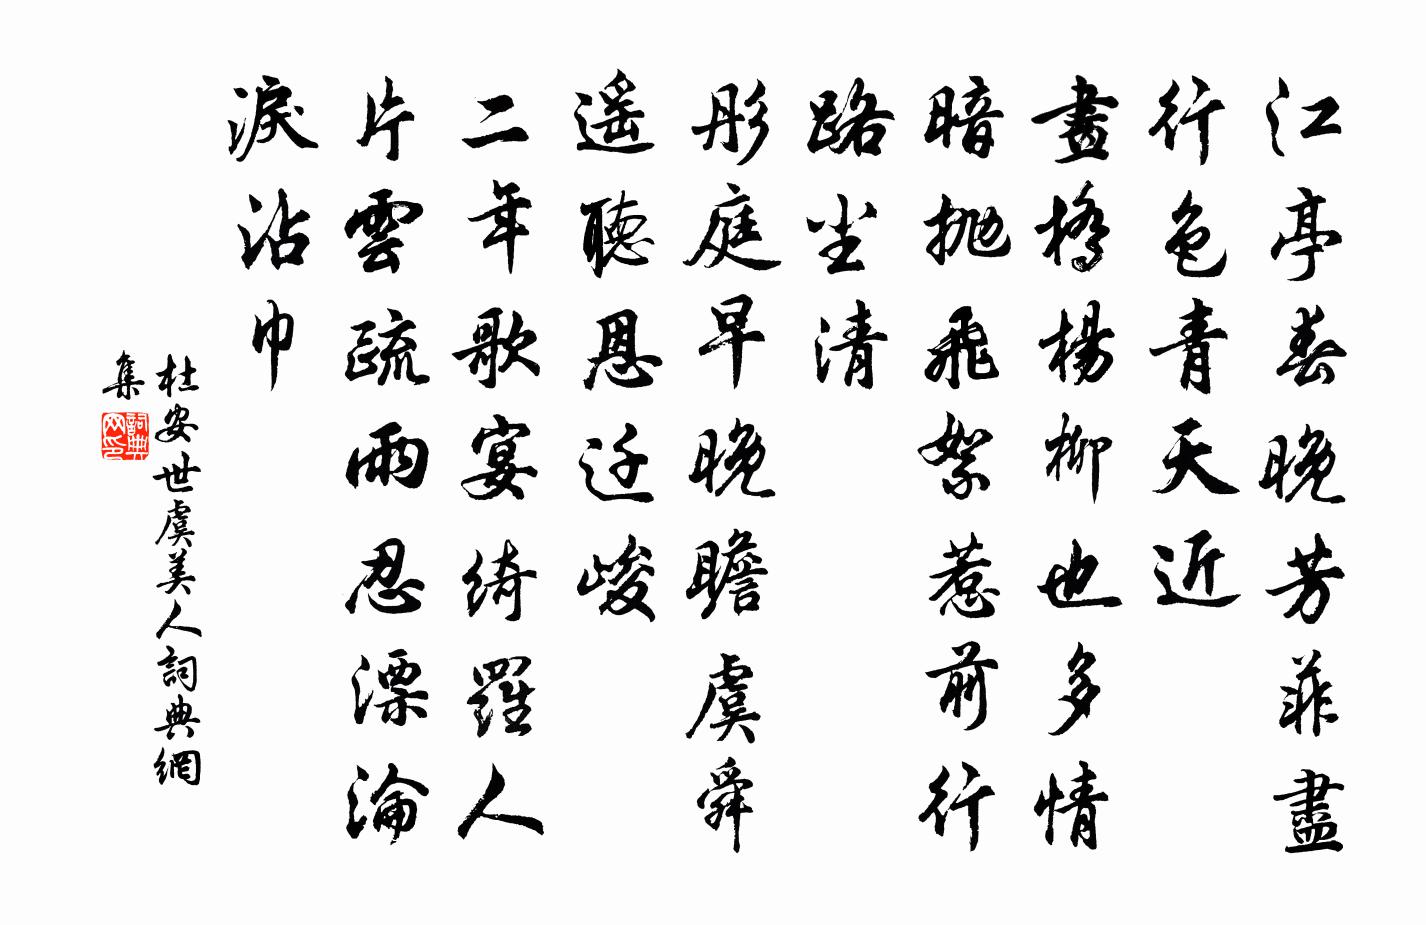 江亭春晚芳菲盡
行色青天近
畫橋楊柳也多情
暗抛飛絮惹前行
路尘清
彤庭早晚瞻虞舜
遥聽恩迁峻
二年歌宴綺羅人
片雲疏雨忍漂淪
淚沾巾
杜安世虞美人詞典網
集
詞典
网印